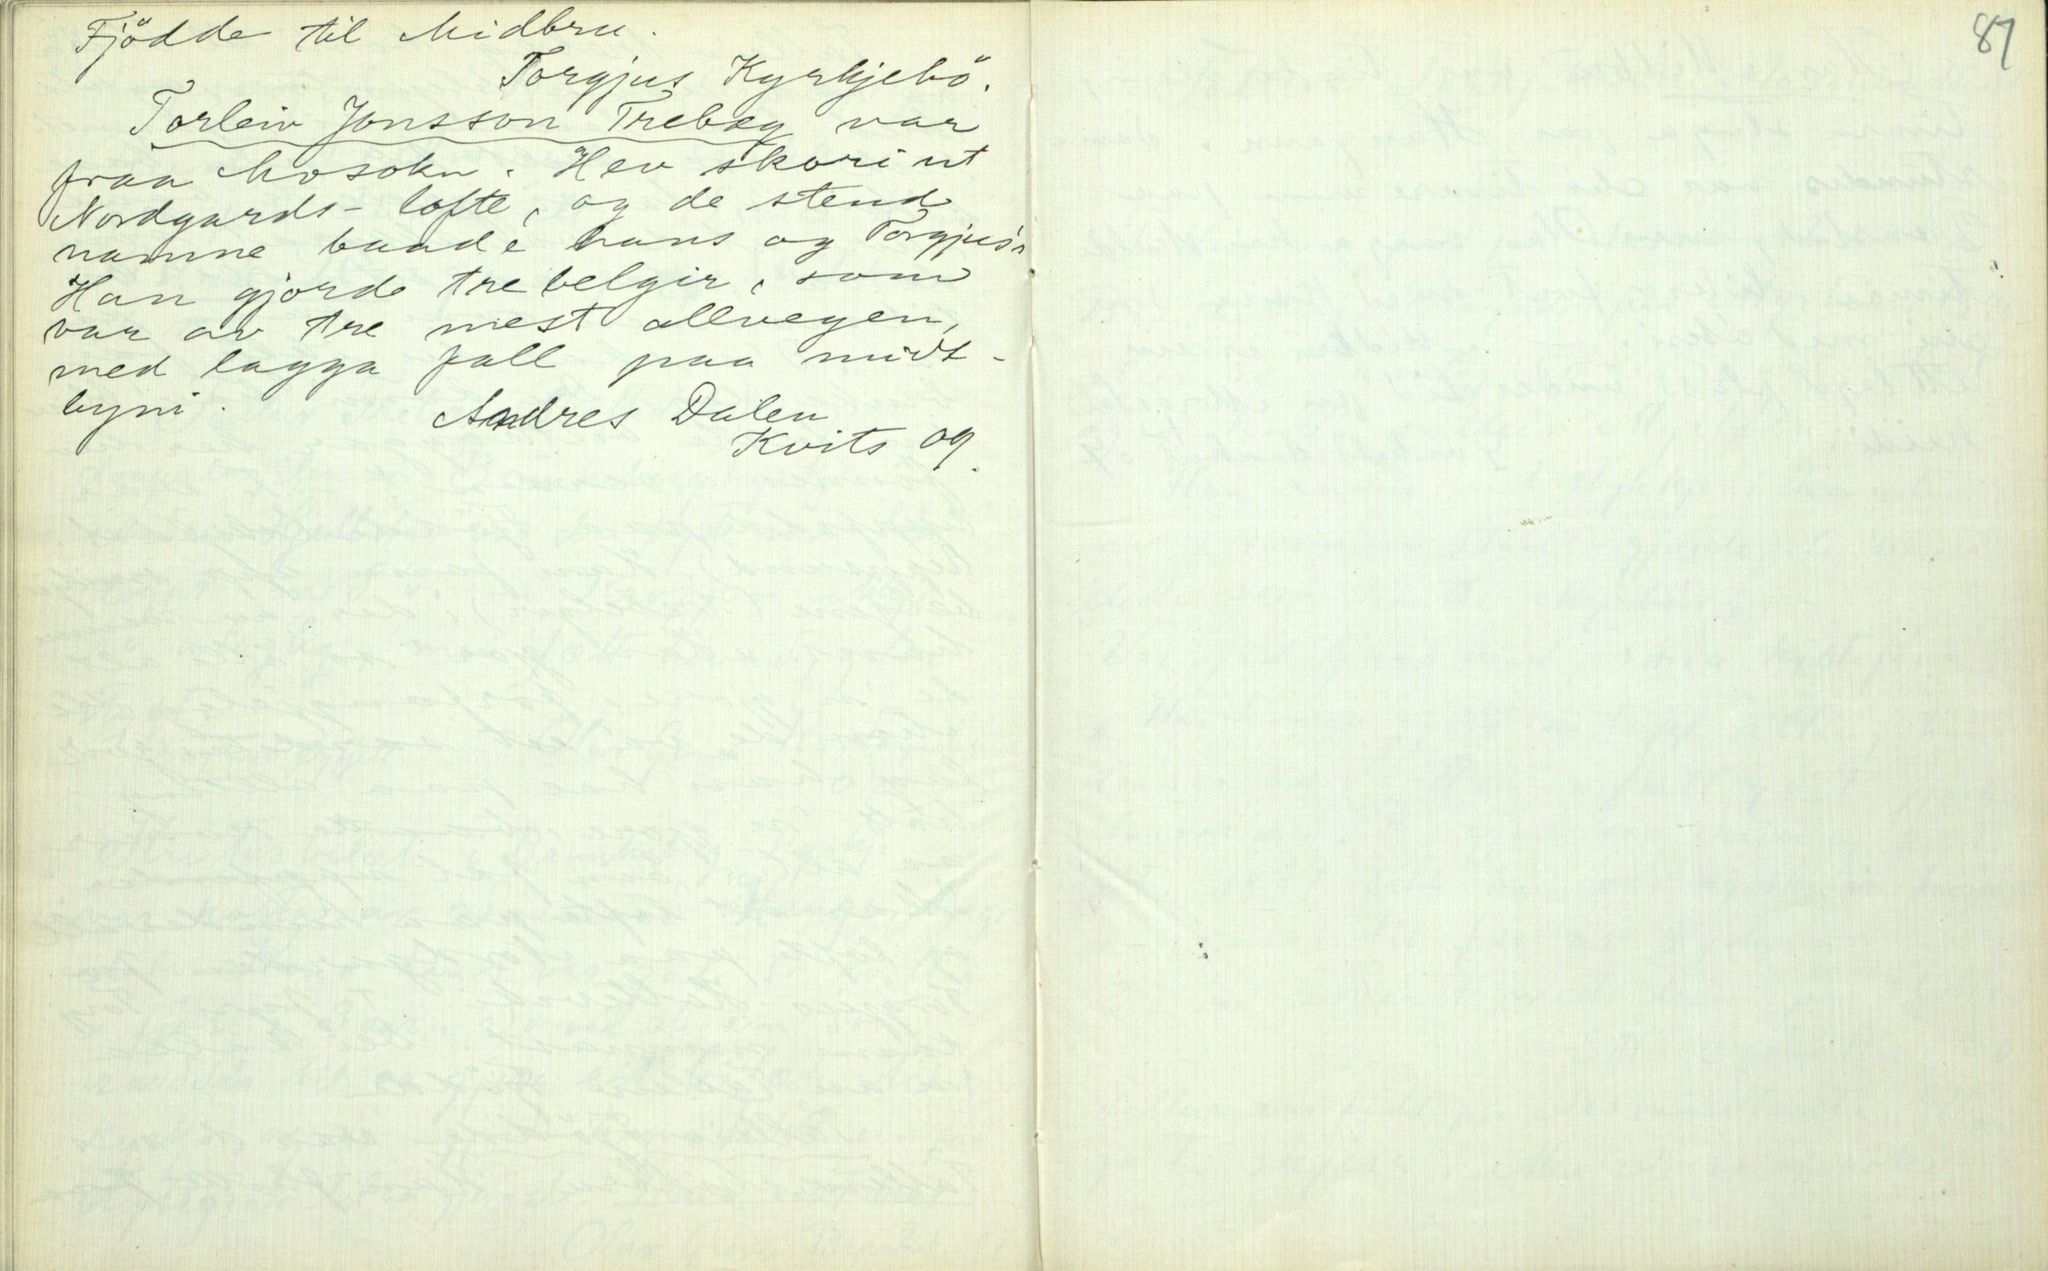 Fjödde til Midbru.
Torgjus Kyrkjebö.
Torleiv Jonsson Trebæg var
fraa Mosokn. Hev skori ut
Nordgards-lofte, og de stend
namne baade hans og Torgjus's
Han gjorde trebelgir, som
var av tre mest allvegen,
med lagga fall paa midt-
byni.
Andres Dalen
Kvits og.
87